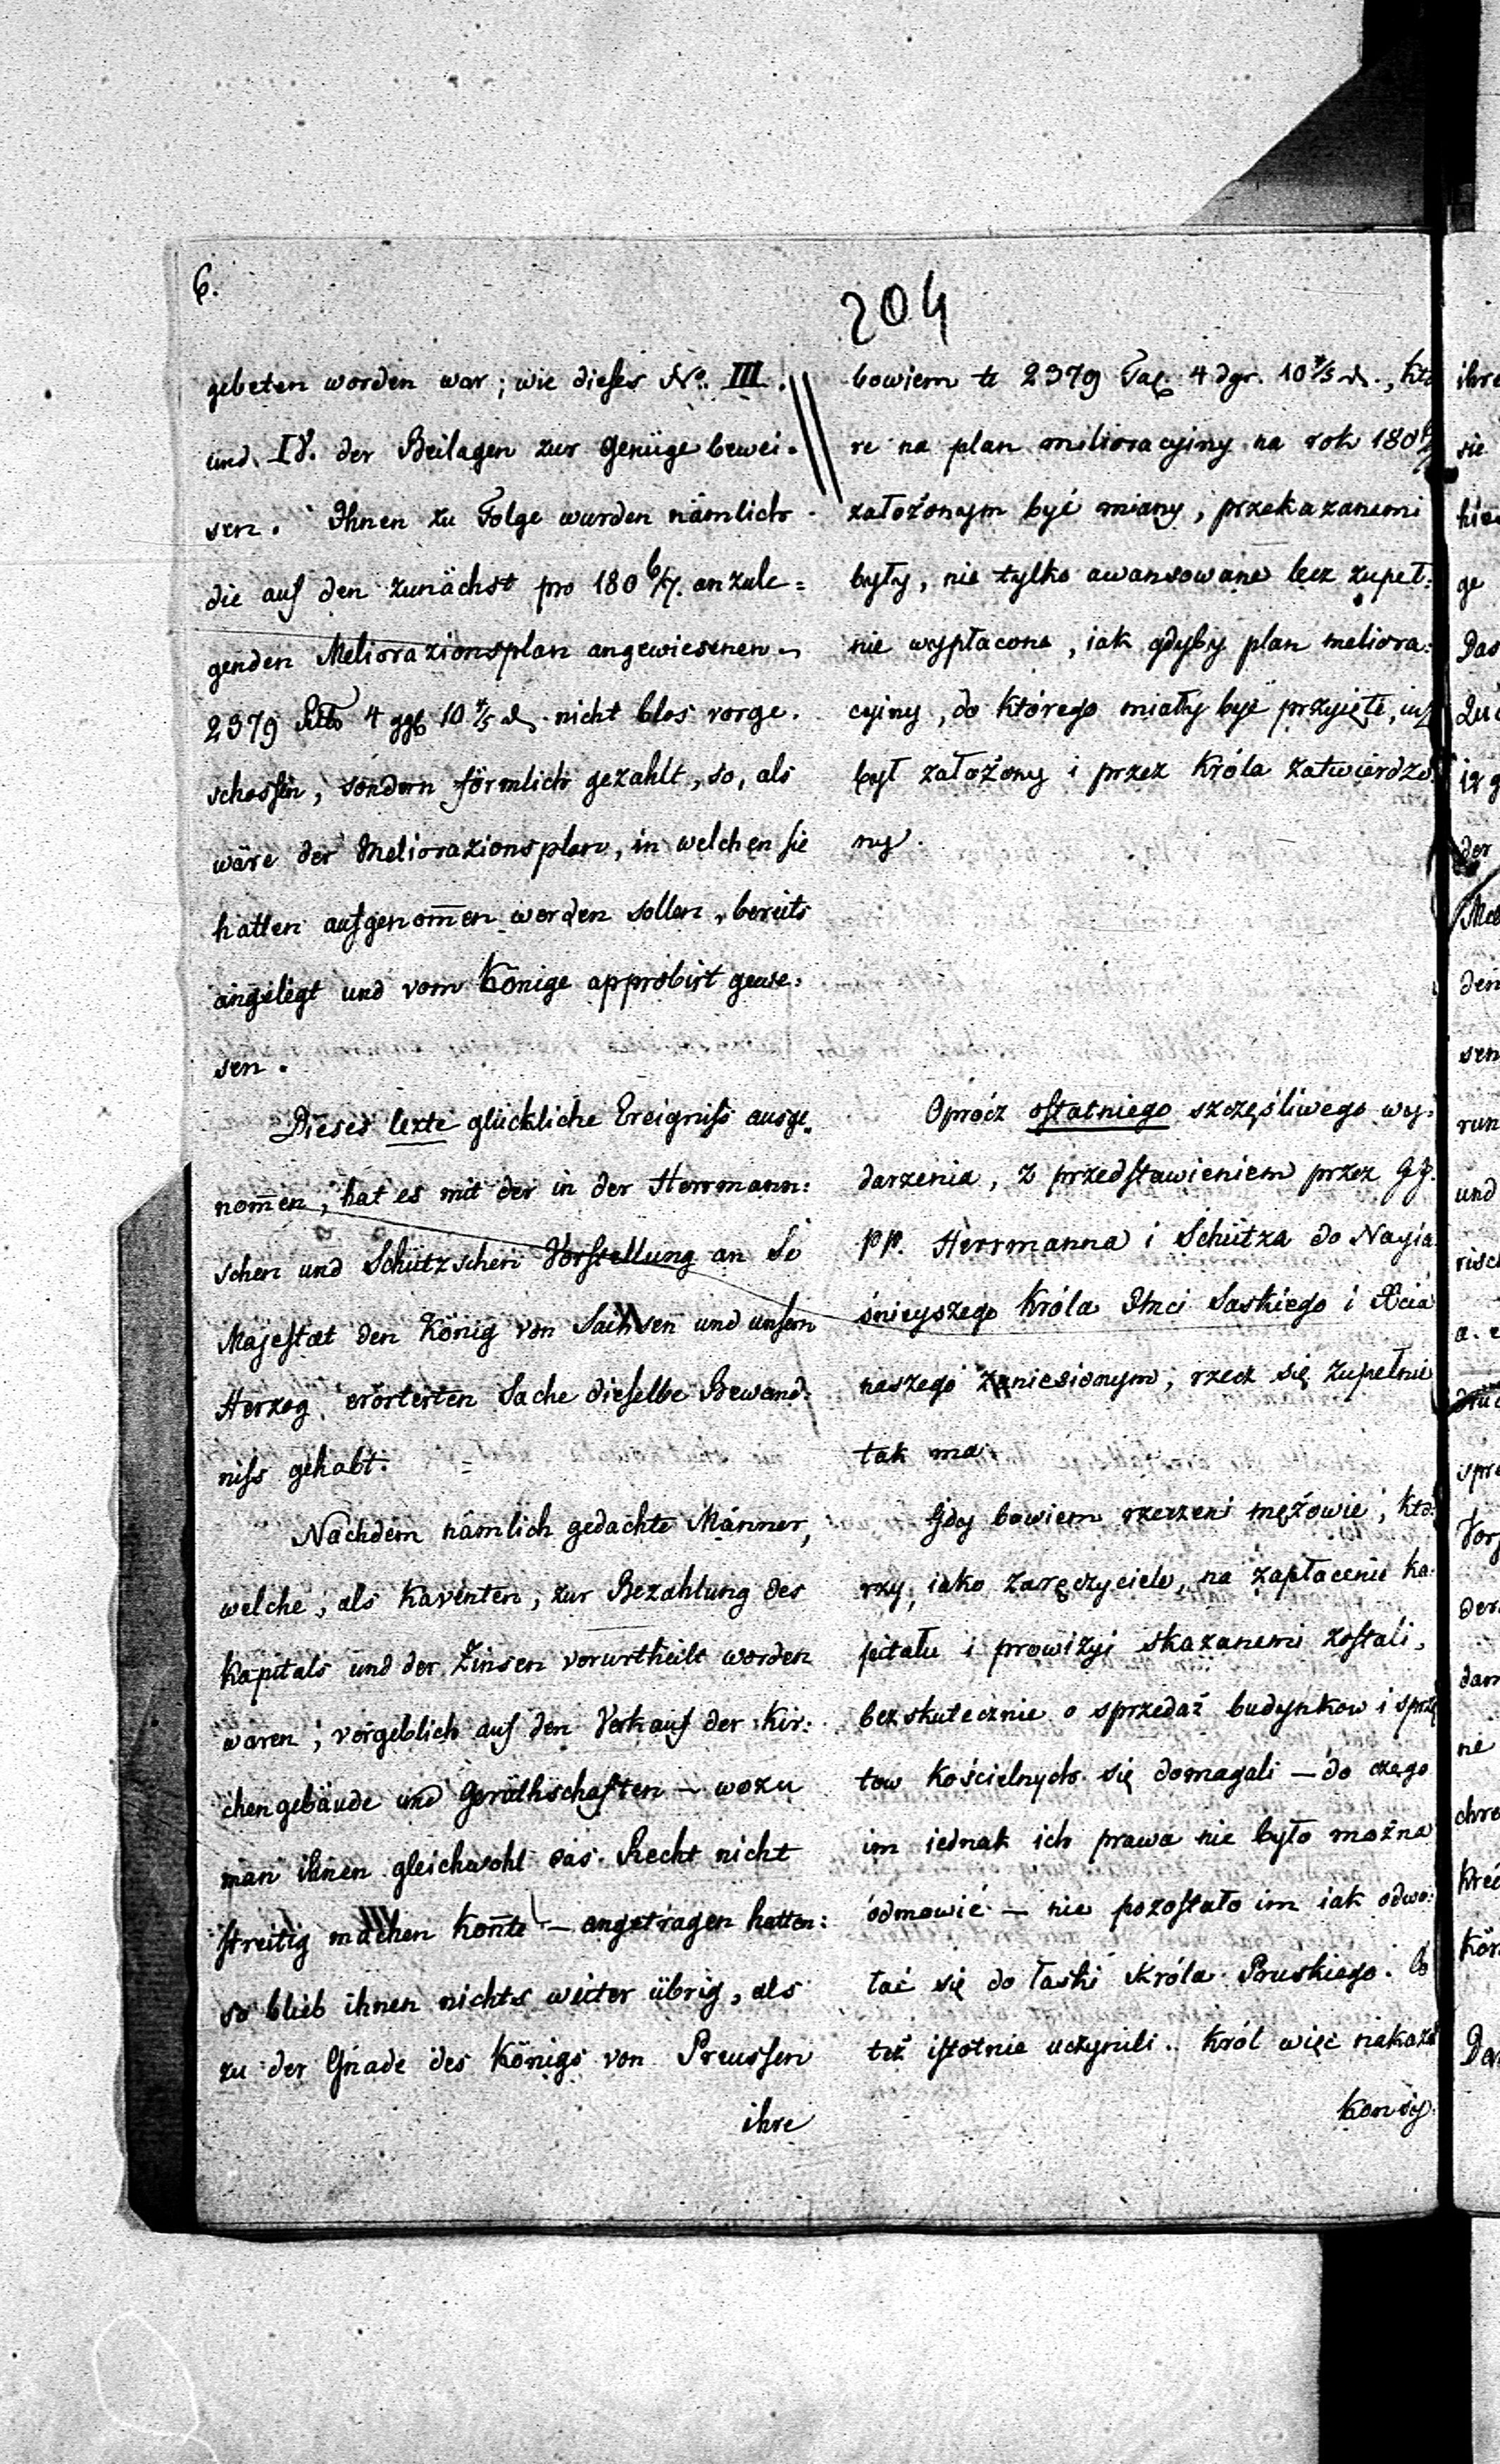 6.
204
gebeten worden war; wie dieses No. III.
und IV. der Beilagen zur Genüge bewei-
sen. Ihnen zu Folge wurden nämlich
die auf den zunächst pro 180 6/7. anzule=
genden Meliorazionsplan angewiesenen
2379 Rtlr 4 ggl 10 4/5 d. nicht blos vorge-
schossen, sondern förmlich gezahlt, so, als
wäre der Meliorazionsplan, in welchen sie
hatten aufgenom̄en werden sollen, bereits
angelegt und vom Könige approbirt gewe-
sen.
Dieses lezte glückliche Ereigniß ausge-
nom̄en, hat es mit der in der Herrmann-
schen und Schützschen Vorstellung an Se
Majestæt den König von Sachsen und unsern
Herzog erörterten Sache dieselbe Bewand-
niss gehabt.
Nachdem nämlich gedachte Männer,
welche, als Kaventen, zur Bezahlung des
Kapitals und der Zinsen verurtheilt worden
waren, vergeblich auf den Verkauf der Kir-
chengebäude und Geräthschaften — wozu
man ihnen gleichwohl das Recht nicht
streitig machen kon̄te — angetragen hatten:
so blieb ihnen nichts weiter übrig, als
zu der Gnade des Königs von Preussen
ihre
bowiem te 2379 Tal. 4 dgr. 10 4/5 d., któ
re na plan milioracyjny na rok 180 6/7
założonym być miany, przekazanemi
były, nie tylko awansowane lecz zupeł-
nie wypłacone, iak gdyby plan meliora-
cyiny, do którego miały być przyięte, iuż
był założony i przez Króla zatwierdzo-
ny.
Oprócz ostatniego szczęśliwego wy-
darzenia, z przedstawieniem przez JJ.
PP. Herrmanna i Schütza do Nayia-
śnieyszego Króla Jmci Saskiego i Xcia
naszego zaniesionym, rzecz się zupełnie
tak ma.
Gdy bowiem rzeczeni mężowie, któ-
rzy, iako zaręczyciele, na zapłacenie ka-
pitału i prowizyi skazanemi zostali,
bezskutecznie o sprzedaż budynkow i sprzę
tow kościelnych się domagali — do czego
im iednak ich prawa nie było można
odmowić — nie pozostało im iak odwo-
łać się do łaski Króla Pruskiego. Co
też istotnie uczynili. Król więc nakazał